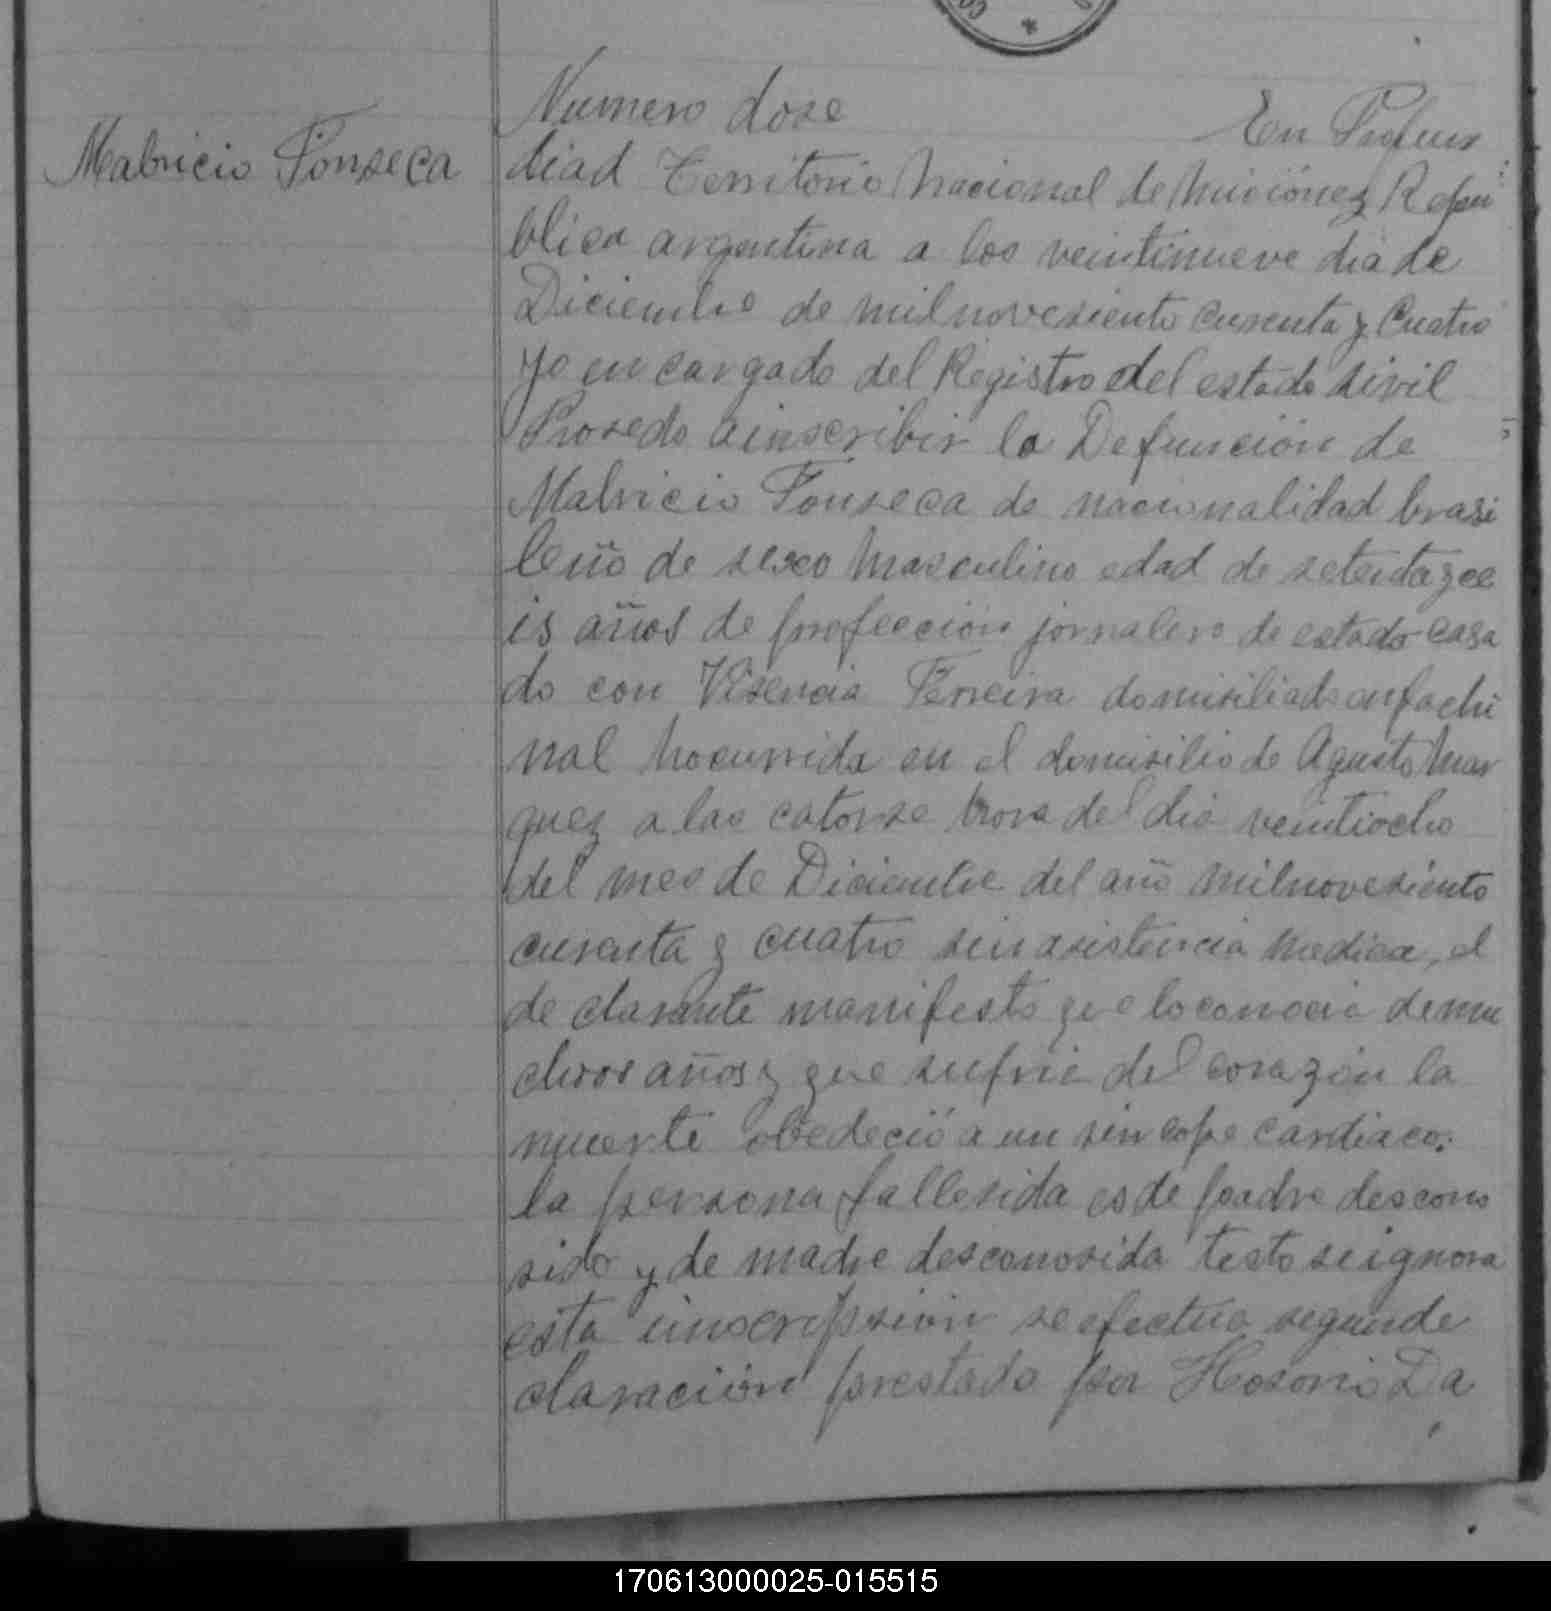 Numero dose
En Profun
Mabricio Fonseca
didad Territorio Nacional de Micionez Repu
blica argentina a los veintinueve dia de
Diciembre de milnovesiento curenta y Cuatro
yo encargado del Registro del estado sivil
Prosedo ainscribir la Defuncion de
Mabricio Fonseca de nacionalidad brasi
leño de sexo Masculino edad de setentayse
is años de profeccion jornalero de estado casa
do con Visencia Ferreira domisiliado enfachi
nal hocurrida en el domisilio de Agusto Mar
quez a las catorse hora del dia veintiocho
del mes de Diciembre del año milnovesiento
curenta y cuatro sin asistencia medica, el
declarante manifesto que loconocia demu
chos años y que sufria del corazón la
muerte obedeció a un sincope cardiaco.
la persona fallesida es de padre descono
sido y de madre desconosida testo seignora
esta inscripsion se efectua segunde
claración prestada por Hosorio Da
170613000025-015515